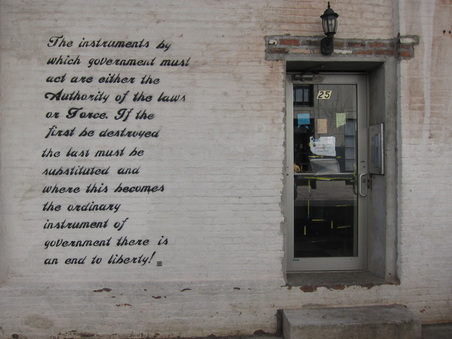 The instruments by
which government must
act are either the
Authority of the laws
or Force. If the
first be destroyed
the last must be
substituted and
where this becomes
the ordinary
instrument of
government there is
an end to liberty!
25